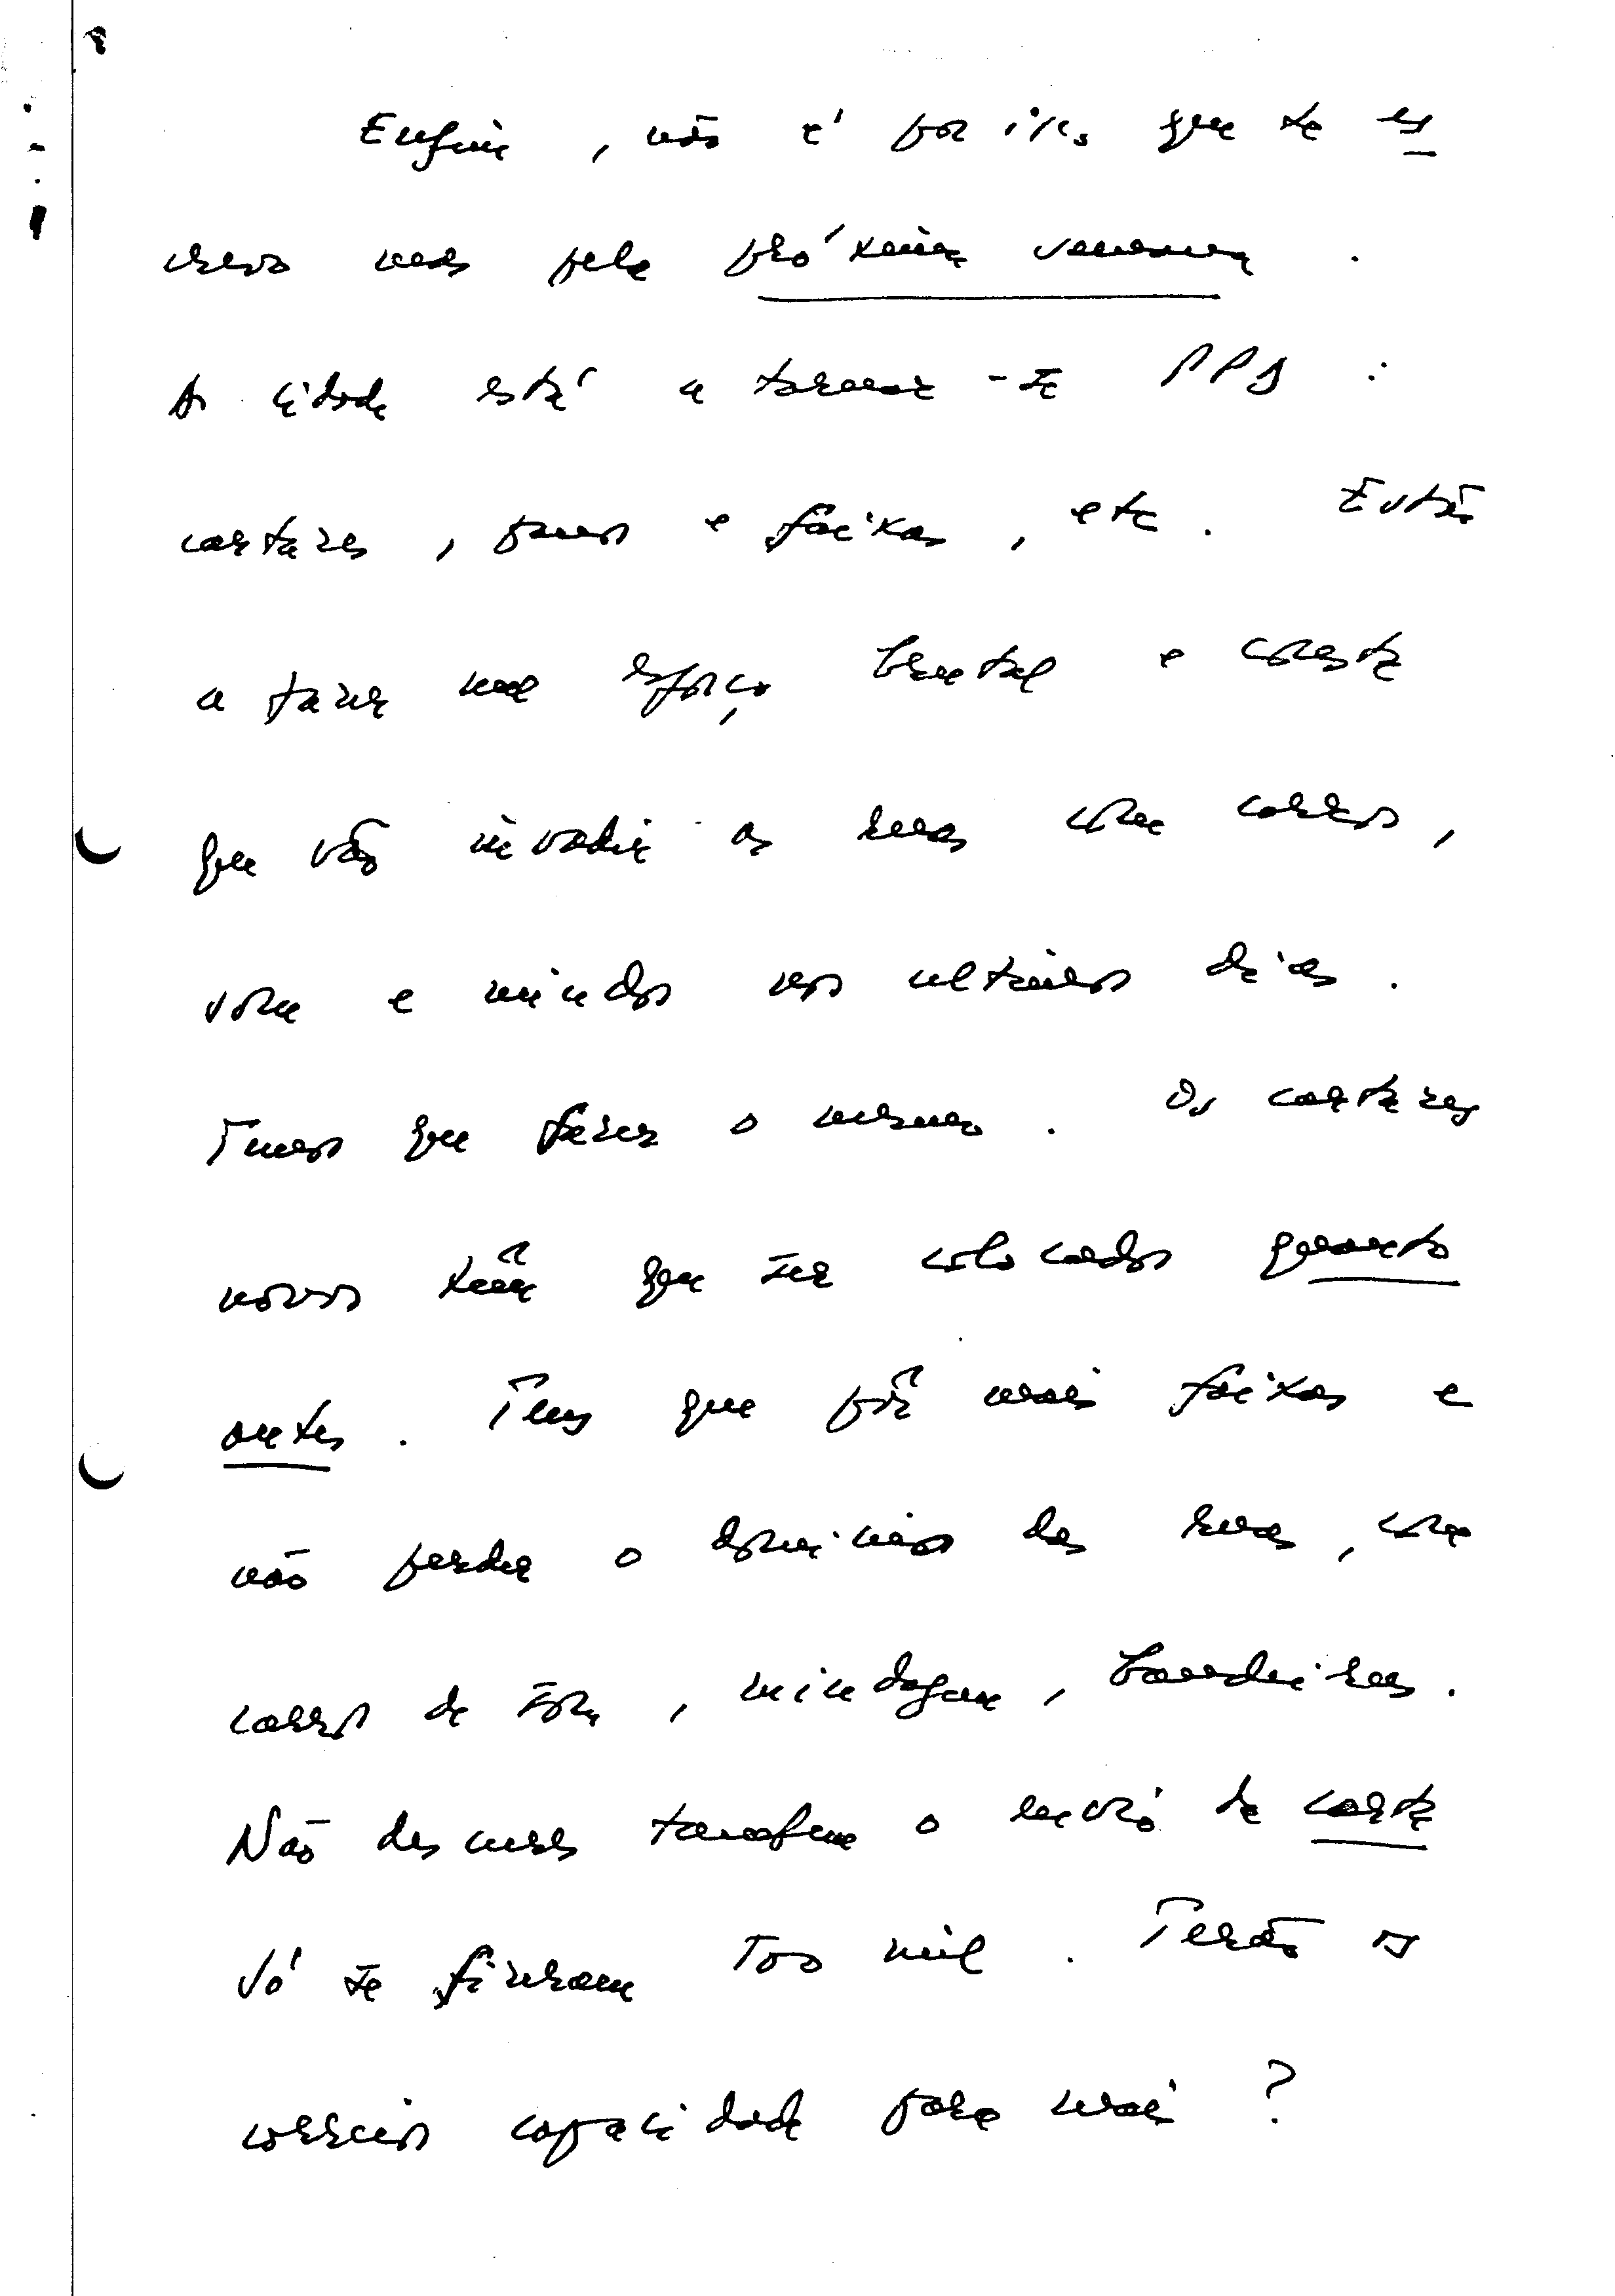 Enfim, não é por isso que te es
crevo mas pela próxima semana.
A cidade está a tornar-se PPD:
cartazes, panos e faixas, etc. Estão
a fazer um esforço brutal e consta
que vão invadir as ruas com carros,
som e miudos nos ultimos dias.
Temos que fazer o mesmo. Os cartazes
novos têm que ser colocados quanto
antes. Tens que pôr mais faixas e
não perder o dominio das ruas, com
carros de som, miudagem, bandeiras.
Não descures tambem o envio de carta
Só se fizeram 700 mil. Terão os
correios capacidade para mais?